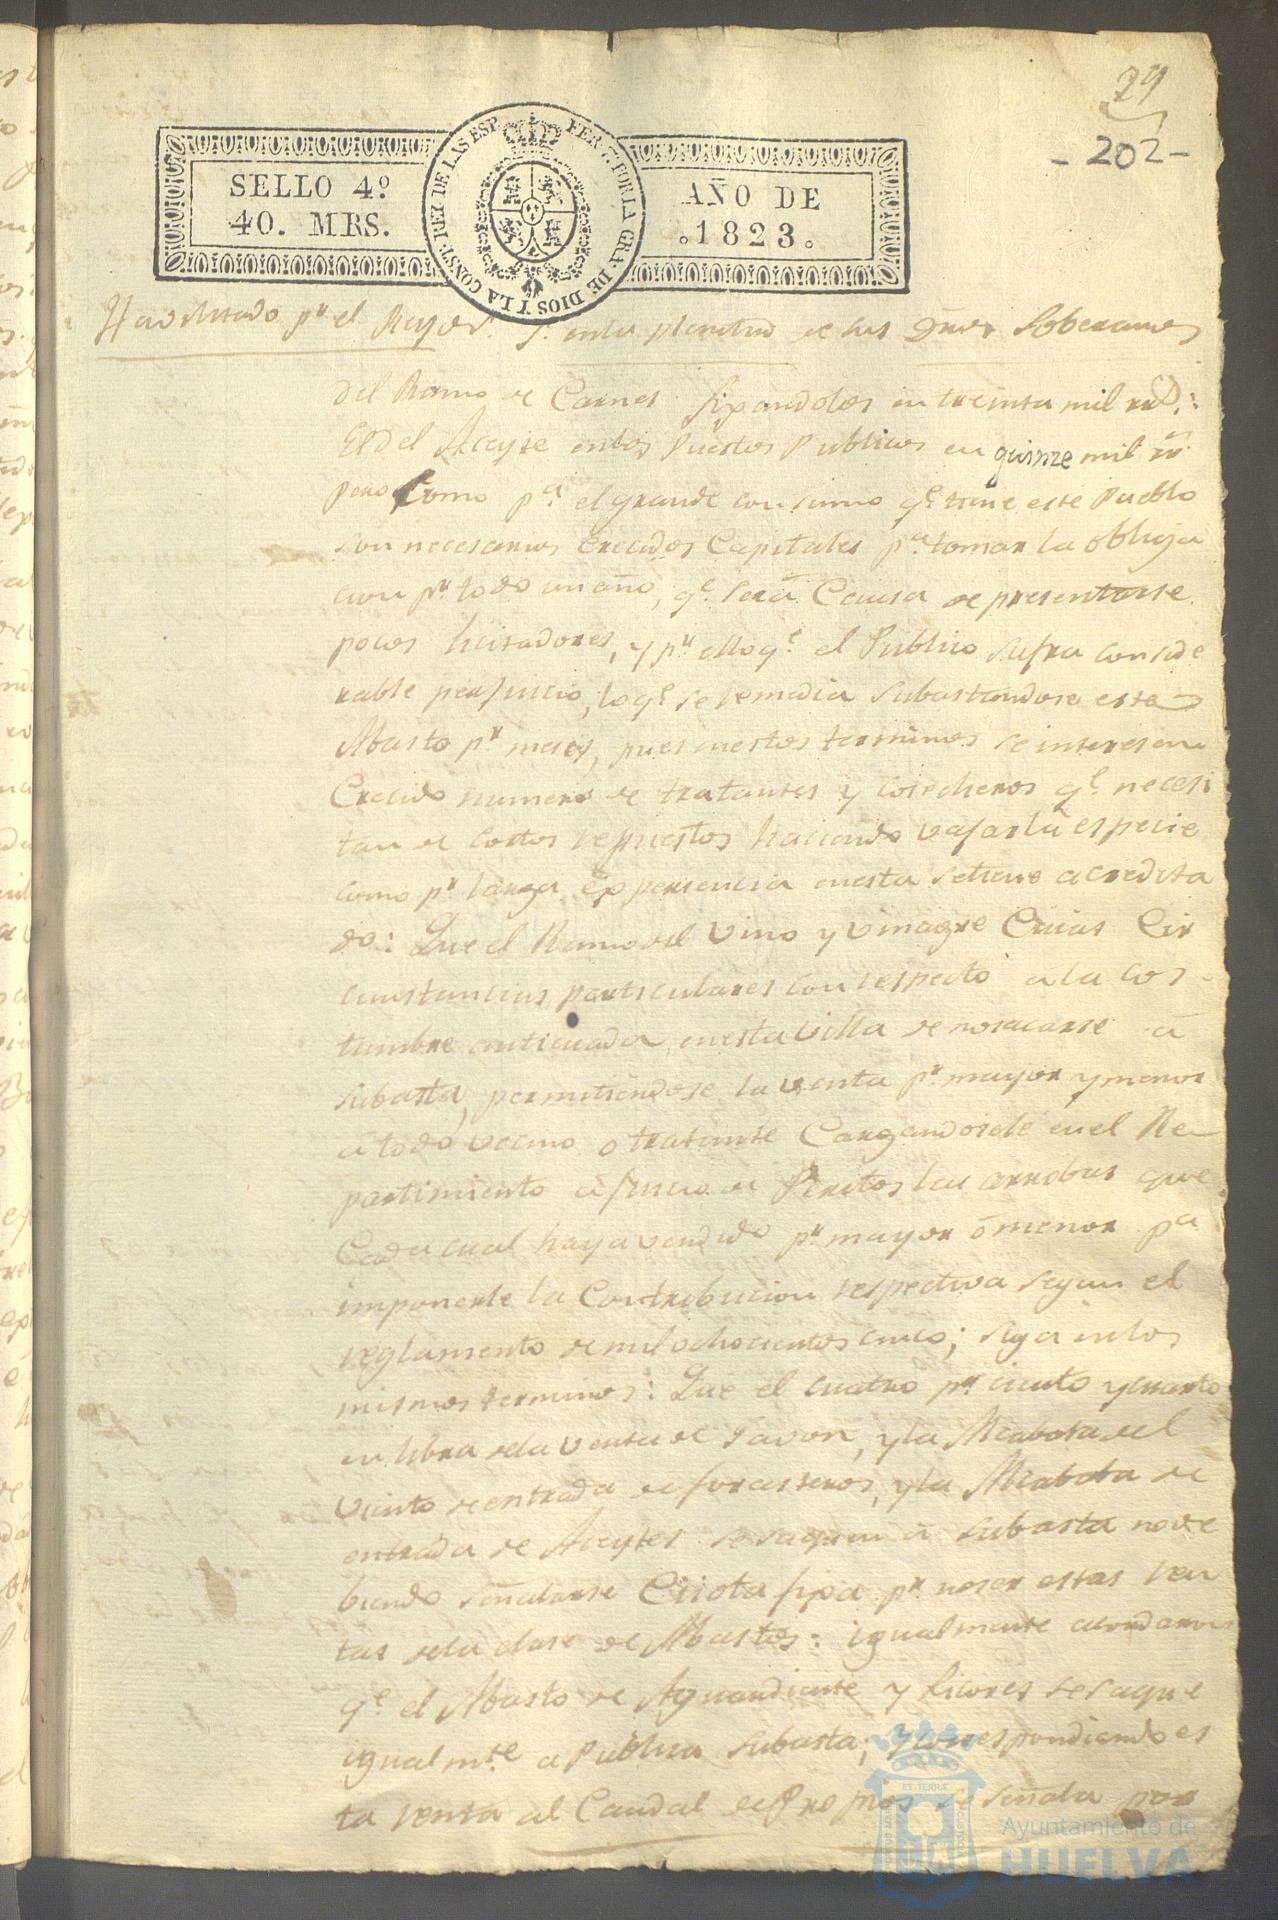 29
- 202 -
SELLO 4º
40. MRS.
FER. 7º POR LA GRA. DE DIOS Y LA CONST. REY DE LAS ESP.
AÑO DE
1823.
Havilitado pr. el Rey N. S. en la plenitud de sus Dros Soberanos
del Ramo de Carnes fixandolos en treinta mil rs.:
El del Aceyte en los Puestos Publicos en quinze mil rs
pero como pa. el grande consumo qe. tiene este Pueblo
son necesarios crecidos Capitales pa. tomar la obliga
cion pr. todo un año, qe. será Causa de presentarse
pocos licitadores, y pr. ello qe. el Publico sufra conside
rable perjuicio, lo qe. se remedia subastandose este
Abasto pr. meses, pues en estos terminos se interesen
Crecido numero de tratantes y cosecheros qe. necesi
tan de cortos repuestos haciendo vajar la especie
como pr. larga experiencia en esta se tiene acredita
do: Que el Ramo del Vino y Vinagre Cuias Cir
cunstancias particulares con respecto a la cos-
tumbre anticuada en esta Villa de no sacarse á
subasta, permitiendose la venta pr. mayor y menor
a todo vecino o tratante Cargandosele en el Re-
partimiento a juicio de Peritos las arrobas que
Cada cual haya vendido pr. mayor ó menor pa
imponerle la Contribucion respectiva segun el
reglamento de mil ochocientos cinco; siga en los
mismos terminos: Que el cuatro pr. ciento y cuarto
en libra de la venta de Javon, y la Alcabala del
Viento de entrada de forasteros, y la Alcabala de
entrada de Aceytes se saquen á subasta no de
biendo señalarse Cuota fixa pr. no ser estas ren
tas de la clase de Abastos: igualmente acordaron
qe. el Abasto de Aguardiente y Licores se saque
igualmte. a Publica subasta; y correspondiendo es
ta renta al Caudal de Propios se señala por
Ayuntamiento de
HUELVA